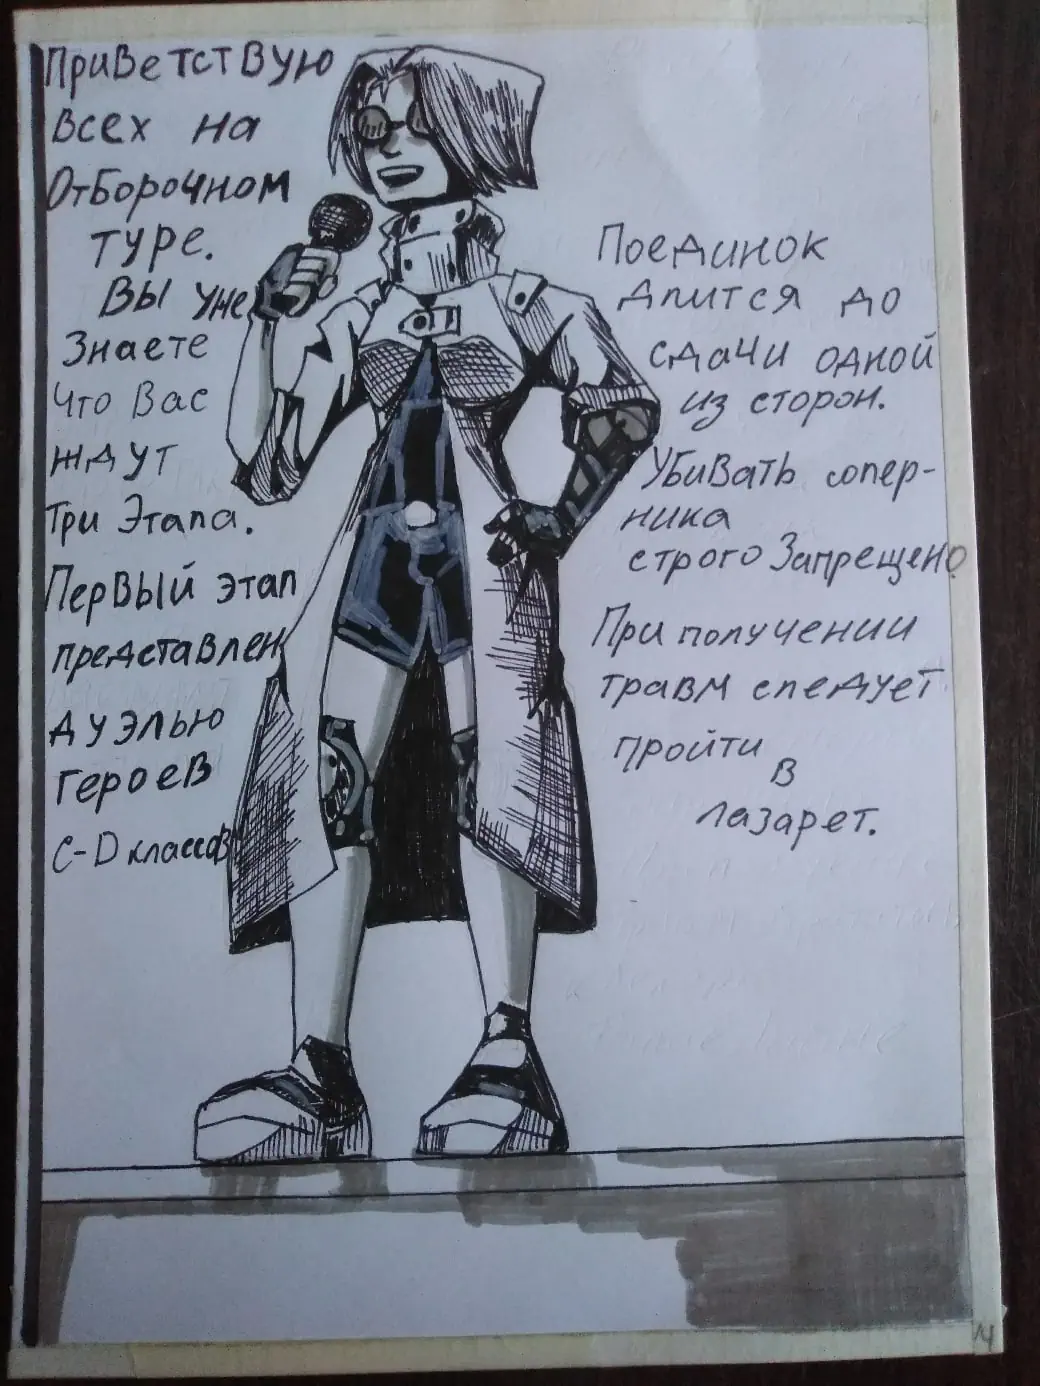 Приветствую
всех на
Отборочном
туре.
Вы уже
знаете
что вас
ждут
три этапа.
Первый этап
представлен
дуэлью
героев
C-D классов
Поединок
длится до
сдачи одной
из сторон.
Убивать сопер-
ника
строго запрещено
При получении
травм следует
пройти
в
лазарет.
14